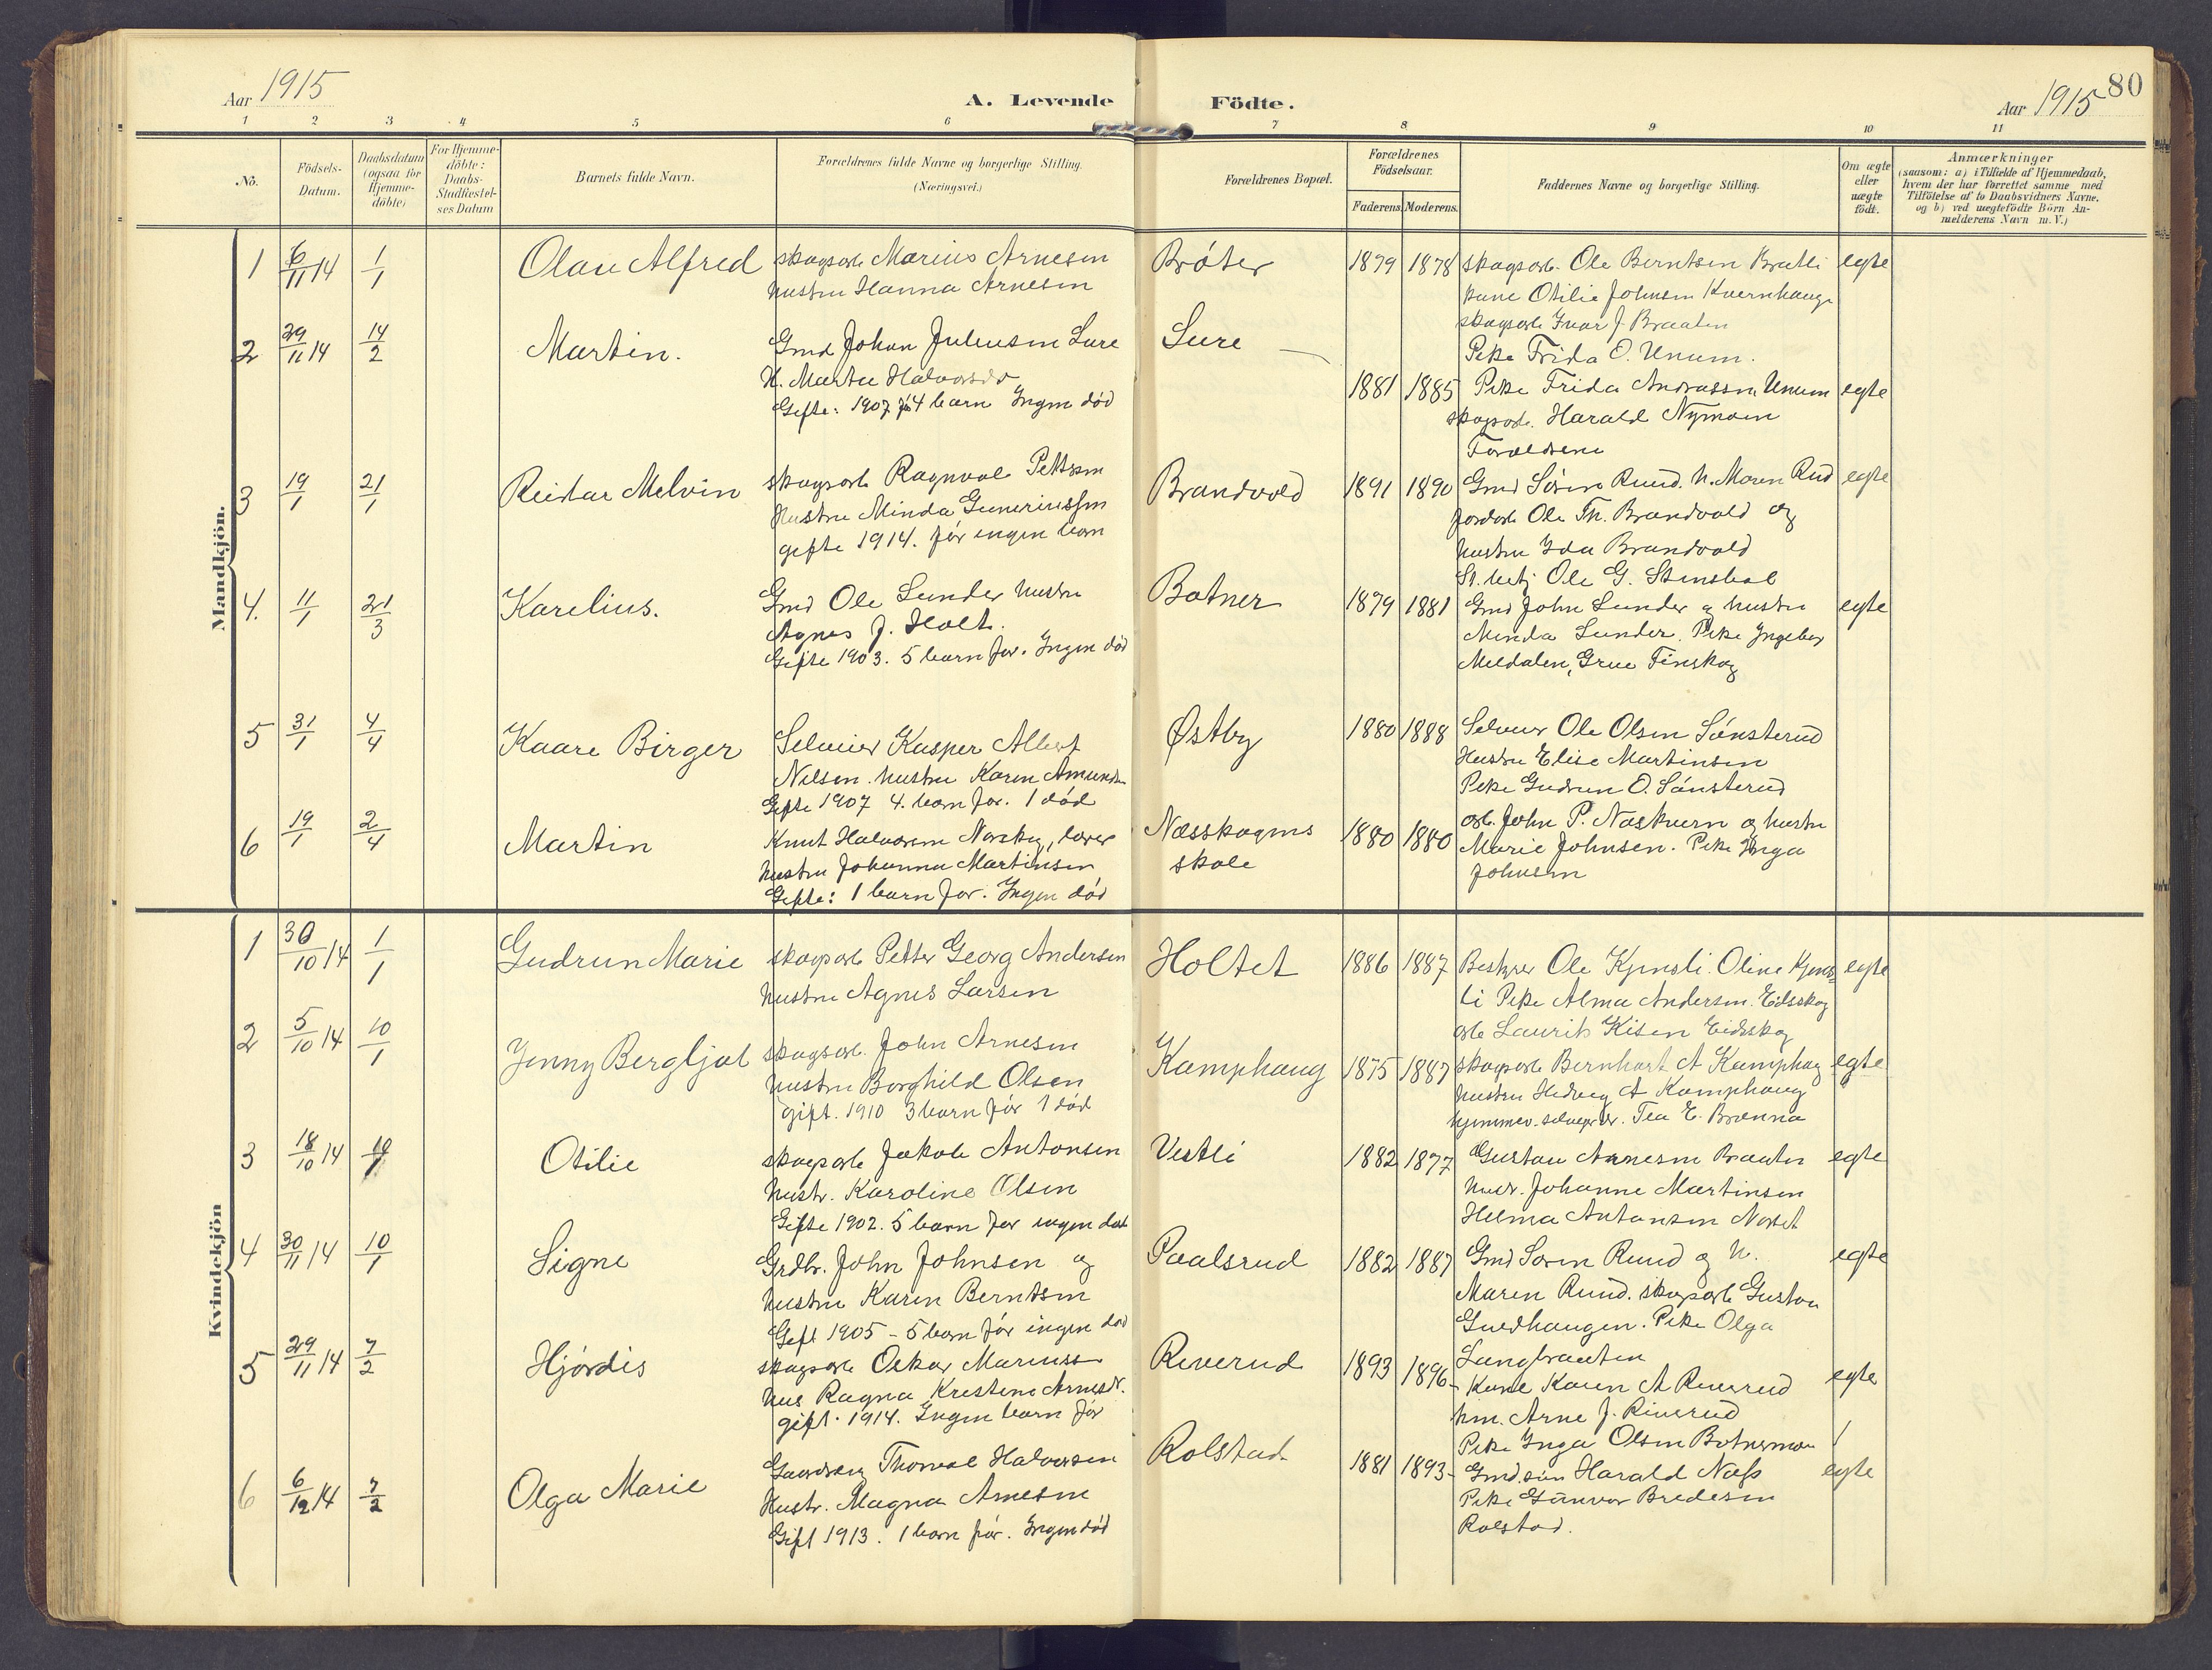 Aar 1915
A. Levende Födte.
Aar 1915
80
1 2 3 4 5 6 7 8 9 10 11
No.
Födsels-Datum.
Daabsdatum (ogsaa for Hjemmedöbte)
For Hjemmedöbte: Daabs-Stadfæstelses Datum
Barnets fulde Navn.
Forældrenes fulde Navne og borgerlige Stilling. (Næringsvei.)
Forældrenes Bopæl.
Forældrenes Födselsaar.
Faderens. Moderens.
Faddernes Navne og borgerlige Stilling.
Om ægte eller uægte födt.
Anmærkninger
(saasom: a) i Tilfælde af Hjemmedaab, hvem der har forrettet samme med Tilföielse af to Daabsvidners Navne, og b) ved uægtefödte Börn Anmelderens Navn m. V.)
Mandkjön.
1 6/11 14 1/1 Olav Alfred
skogsarb Marius Arnesen
hustru Hanna Arnesen
Bråter 1879 1878
skogsarb. Ole Berntsen Bratli
kone Otilie Johnsen Kvernhaug
skogsarb Ivar J. Braaten
Pike Frida O. Unum.
egte
2 29/11 14 14/2 Martin.
Gmd Johan Juliussen Sure
H. Marte Halvorsdr
Gifte: 1907 før 4 barn Ingen død
Sure 1881 1885
Pike Frida Andreassen Unum
skogsarb. Harald Nymoen
Forældrene
egte
3 19/1 21/1 Reidar Melvin
skogsarb Ragnval Pettersen
Hustru Minda Guneriussen
gifte 1914. før ingen barn
Brandvold 1891 1890
Gmd Søren Ruud. h. Maren Rud
jordarb Ole Th. Brandvold og
hustru Ida Brandvold
egte
4. 11/1 21/3 Karelius.
Gmd Ole Sunder hustru
Agnes J. Holt.
Gifte 1903. 5 barn før. Ingen død
Botner 1879 1881
Ole G. Stenshol
Gmd John Sunder og hustru
Minda Sunder. Pike Ingebor
Meldalen, Grue Finskog
egte
5 31/1 4/4 Kaare Birger
Selveier Kasper Albert
Nilsen. hustru Karen Amundsen
Gifte 1907 4. barn før. 1 død
Østby 1880 1888
Selveier Ole Olsen Sønsterud
Hustru Elise Martinsen
Pike Gudrun O. Sønsterud
6 19/1 2/4 Martin
Knut Halvorsen Norsby, lærer
hustru Johanna Martinsen
Gifte: 1 barn før. Ingen død
Næsskogens skole 1880 1880
arb. John P. Næskvern og hustru
Marie Johnsen. Pike Inga
Johnsen
Kvindekjön
1 30/10 14 1/1 Gudrun Marie
skogsarb Petter Georg Andersen
hustru Agnes Larsen
Holtet 1886 1887
Bestyrer Ole Kjensli. Oline Kjens
li Pike Alma Andersen. Eidsskog
arb Laurits Kisen Eidsskog
egte
2 5/10 14 10/1 Jenny Bergljot
skogsarb. John Arnesen
hustru Borghild Olsen
gift. 1910 3 barn før 1 død
Kamphaug 1875 1887
skogsarb Bernhart A Kamphaug
hustru Hedvig A Kamphaug
hjemmev. selveierdr. Tea E. Brænna
egte
3 18/10 14 Otilie
skogsarb Jakob Antonsen
hustr. Karoline Olsen
Gifte 1902. 5 barn før ingen død
Vestli 1882 1877
Gustav Arnesen Braaten
hustr. Johanne Martinsen
Helma Antonsen Noret
egte
4 30/11 14 10/1 Signe
Grdbr. John Johnsen og
hustru Karen Berntsen
Gift 1905 - 5 barn før ingen død
Paalsrud 1882 1887
Gmd Søren Ruud og h.
Maren Ruud. skogsarb Gustav
Gueshaugen. Pike Olga
Langbraaten
egte
5 29/11 14 7/2 Hjørdis
skogsarb Oskar Mariuss
hus Ragna Kristine Arnesdr.
gift. 1914. Ingen barn før
Riverud 1893 1896
Kone Karen A Riverud
hm. Arne J. Riverud
Pike Inga Olsen Botnermoen
egte
6 6/12 14 7/2 Olga Marie
Gaardsarb Thorval Halvorsen
Hustr. Magna Arnesen
Gift 1913. 1 barn før. Ingen død
Rolstad 1881 1893
Gmd.søn Harald Næss
Pike Gunvor Bredesen
Rolstad.
egte